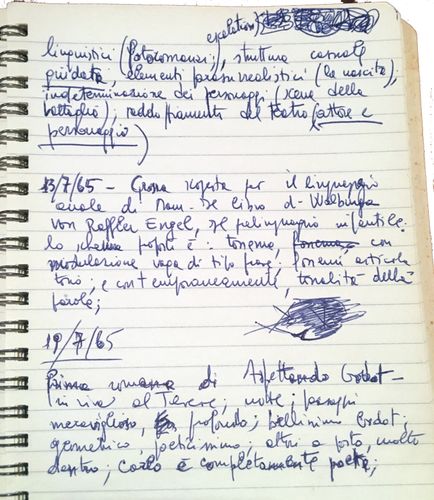 espletivo)
linguistici (fotoromanzi), struttura casuale
guidata elementi parasurrealistici (la nascita),
indeterminazione dei personaggi (scena della
battaglia); raddoppiamento del teatro (attore e
personaggio)
13/7/65 - Grossa scoperta per il linguaggio
orale di Mam. Il libro di Walburga
von Raffler Engel, sul prelinguaggio infantile.
lo schema proposto è: tonema, fonema, con
modulazione vaga di tipo fras. fonemi articola
tori, e contemporaneamente, tonalità della
parola;
19/7/65
Prima romana di Aspettando Godot -
in riva al Tevere; notte; paesaggi
meraviglioso, profondo; bellissimo Godot;
geometrico, poeticissimo; attori a posto, molto
dentro; Carlo è completamente poeta;